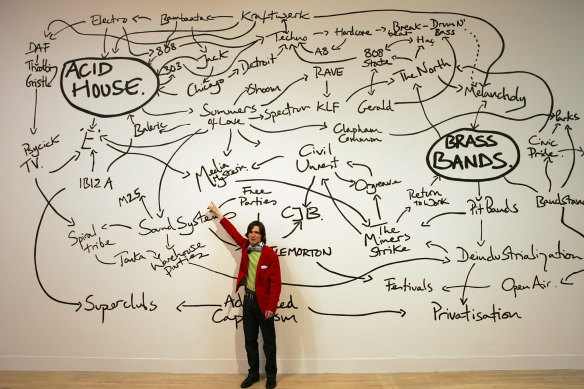 Electro
Bambaataa
Kraftwerk
DAF
808
Techno
Hardcore
Break-
beat
Drum N'
Bass
Throbbing
Gristle
ACID
HOUSE.
303
Jack
A8
Hac
808
State
Chicago
Detroit
The North
Shoom
RAVE
Melancholy
Summers
of Love
Spectrum
KLF
Gerald
Parks
Psycick
TV.
'E'
Baleric
Clapham
Common
BRASS
BANDS.
Civic
Pride
Media
Hysteria.
Civil
Unrest
Orgreave
IBIZA
M25
Free
Parties
Return
to Work
Pit Bands
Bandstand
Sound Systems
CJB.
The
Miners
Strike
Spiral
tribe
Tonka
Warehouse
parties
EMORTON
Deindustrialization
Superclubs
Ad
ed
Cap
sm
Festivals
Open Air.
Privatisation